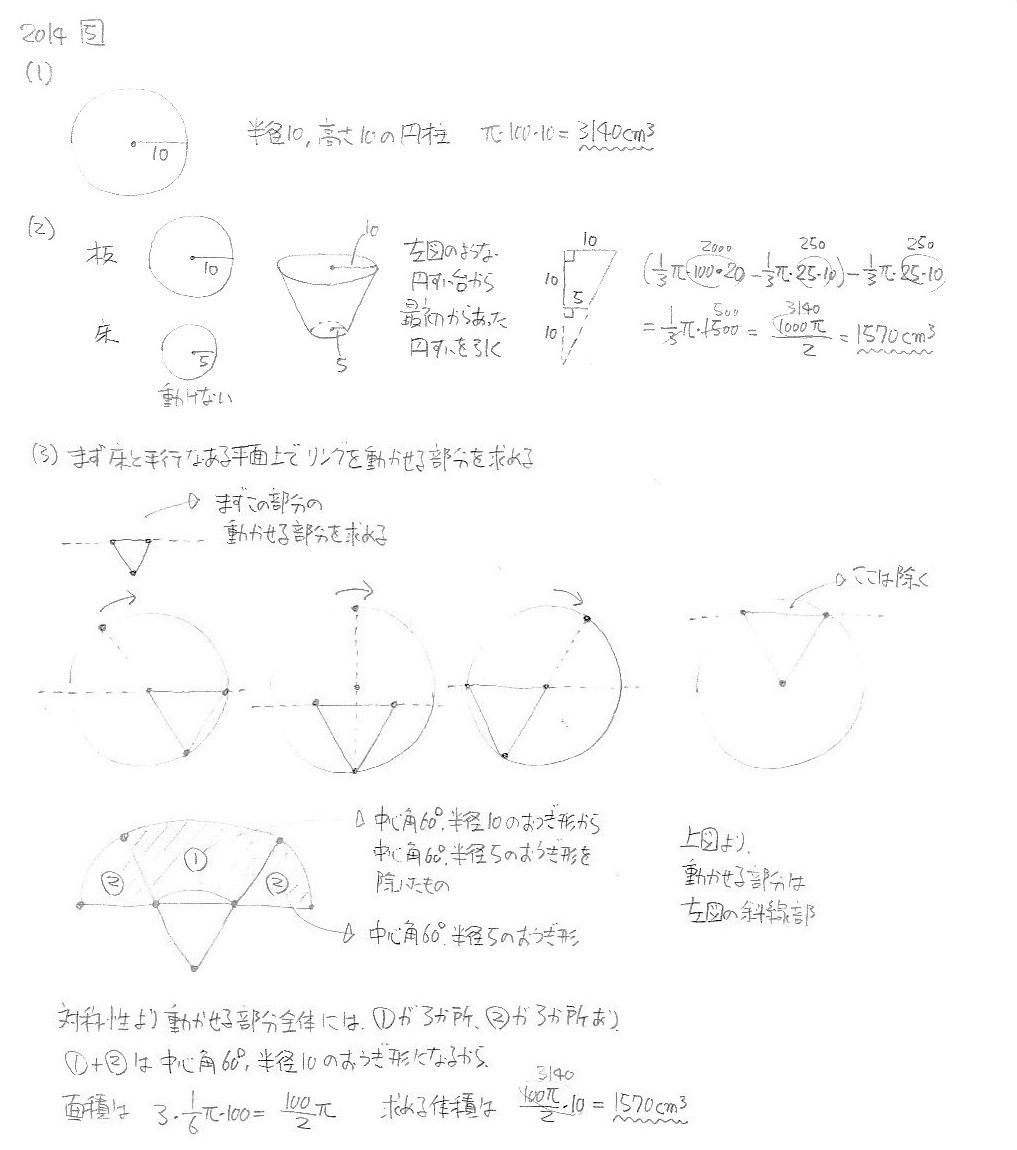 2014 5
(1)
10
半径10, 高さ10の円柱 π・100・10 = 3140cm³
(2)
板 10
床 5
動けない
10
5
左図のような
円すい台から
最初からあった
円すいを引く
10
10
5
10
2000 250 250
(1/3π・100・20 - 1/3π・25・10) - 1/3π・25・10
500 3140
= 1/3π・1500 = 1000π/2 = 1570cm³
(3) まず床と平行なある平面上でリングを動かせる部分を求める
まずこの部分の
動かせる部分を求める
ここは除く
① ② ②
中心角60°, 半径10のおうぎ形から
中心角60°, 半径5のおうぎ形を
除いたもの
中心角60°, 半径5のおうぎ形
上図より,
動かせる部分は
左図の斜線部
対称性より動かせる部分全体には, ①が3か所, ②が3か所あり
①+②は中心角60°, 半径10のおうぎ形になるから,
面積は 3・1/6π・100 = 100/2π 求める体積は 100π/2・10 = 1570cm³
3140